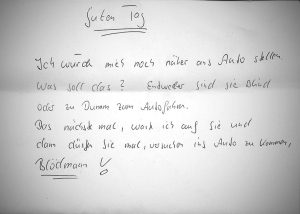 Guten Tag
Ich würd mich noch näher ans Auto stellen
Was soll das? Endweder sind sie Blind
oder zu Dumm zum Autofahren.
Das nächste mal, wart ich auf sie und
dann dürfen sie mal, versuchen ins Auto zu kommen,
Blödmann !